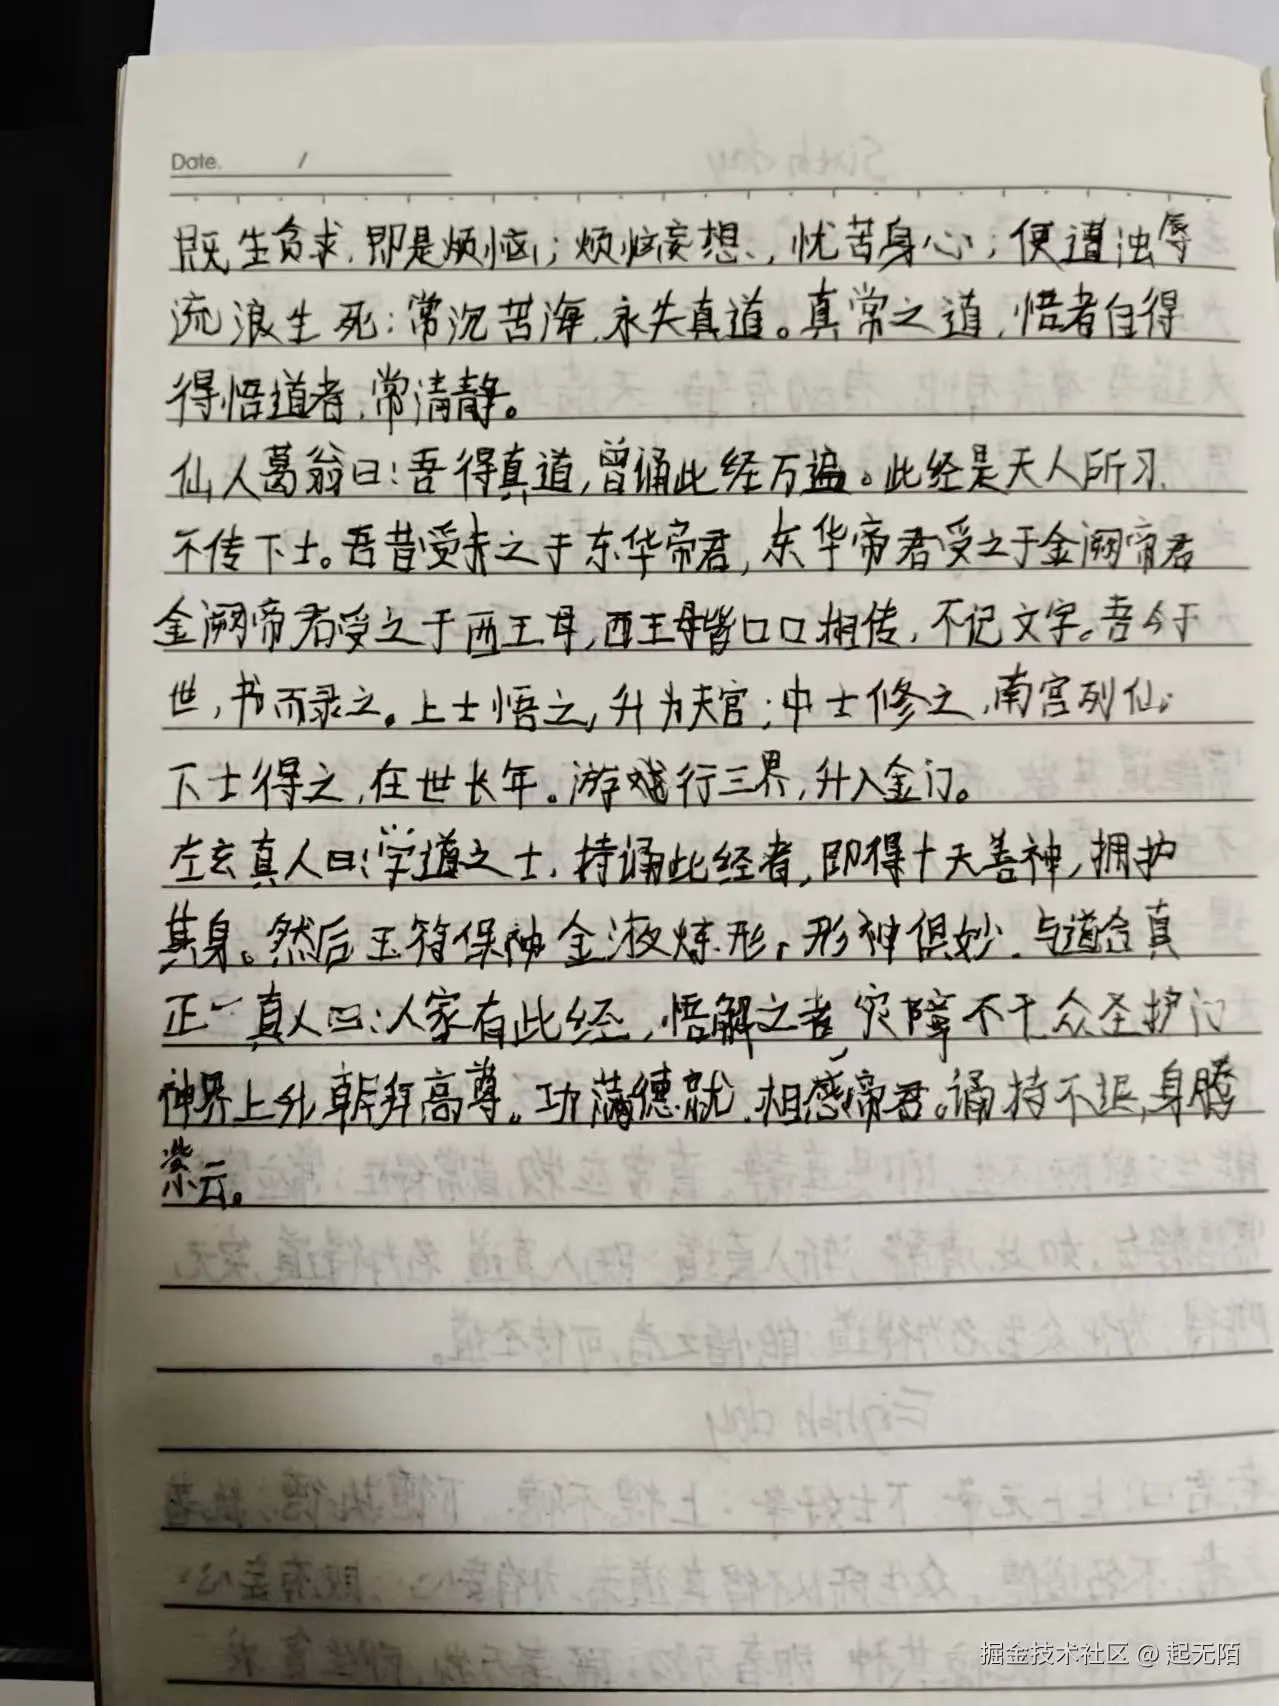 Date.      /
既生贪求,即是烦恼;烦恼妄想,忧苦身心;便遭浊辱
流浪生死;常沉苦海,永失真道。真常之道,悟者自得
得悟道者,常清静。
仙人葛翁曰:吾得真道,曾诵此经万遍。此经是天人所习,
不传下士。吾昔受之于东华帝君,东华帝君受之于金阙帝君
金阙帝君受之于西王母,西王母皆口口相传,不记文字。吾今于
世,书而录之。上士悟之,升为天官;中士修之,南宫列仙;
下士得之,在世长年。游戏行三界,升入金门。
左玄真人曰:学道之士,持诵此经者,即得十天善神,拥护
其身。然后玉符保神金液炼形,形神俱妙,与道合真
正一真人曰:人家有此经,悟解之者,灾障不干众圣护门
神界上升朝拜高尊。功满德就,相感帝君。诵持不退,身腾
紫云。
掘金技术社区 @ 起无陌